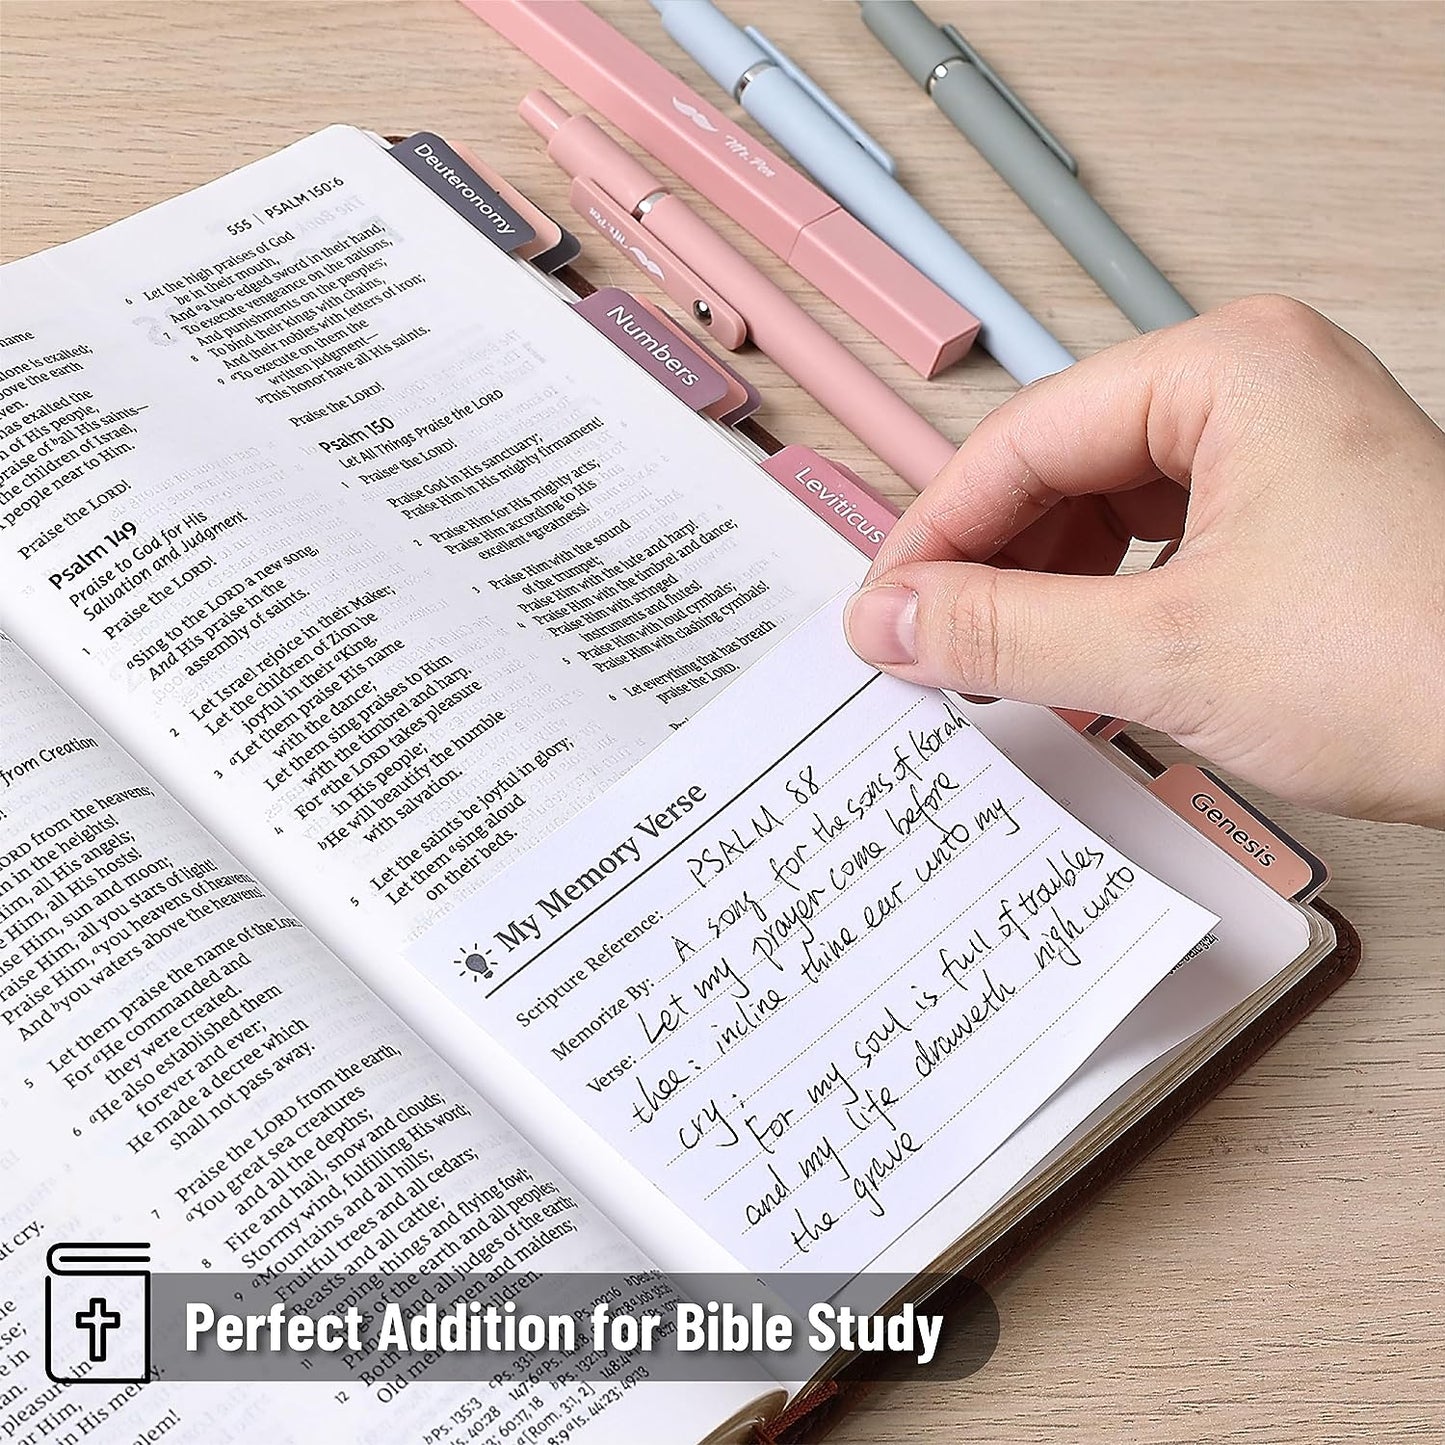 555 | PSALM 150:6
name
alone is exalted;
above the earth
has exalted the
of His people,
praise of ᵇall His saints—
the children of Israel,
people near to Him.
Praise the LORD!
Psalm 149
Praise to God for His
Salvation and Judgment
1 Praise the LORD!
ᵃSing to the LORD a new song,
And His praise in the
assembly of saints.
2 Let Israel rejoice in their Maker;
Let the children of Zion be
joyful in their ᵃKing.
3 ᵃLet them praise His name
with the dance;
Let them sing praises to Him
with the timbrel and harp.
4 For ᵃthe LORD takes pleasure
in His people;
ᵇHe will beautify the humble
with salvation.
5 Let the saints be joyful in glory;
Let them ᵃsing aloud
on their beds.
6 Let the high praises of God
be in their mouth,
And ᵃa two-edged sword in their hand,
7 To execute vengeance on the nations,
And punishments on the peoples;
8 To bind their kings with chains,
And their nobles with fetters of iron;
9 ᵃTo execute on them the
written judgment—
ᵇThis honor have all His saints.
Praise the LORD!
Psalm 150
Let All Things Praise the LORD
1 Praiseᵃ the LORD!
Praise God in His sanctuary;
Praise Him in His mighty firmament!
2 Praise Him for His mighty acts;
Praise Him according to His
excellent ᵃgreatness!
3 Praise Him with the sound
of the trumpet;
Praise Him with the lute and harp!
4 Praise Him with the timbrel and dance;
Praise Him with stringed
instruments and flutes!
5 Praise Him with loud cymbals;
Praise Him with clashing cymbals!
6 Let everything that has breath
praise the LORD.
from Creation
LORD from the heavens;
in the heights!
Him, all His angels;
Him, all His hosts!
Him, sun and moon;
Him, all you stars of light!
Him, ᵃyou heavens of heavens,
And ᵇyou waters above the heavens!
5 Let them praise the name of the LORD,
For ᵃHe commanded and
they were created.
6 ᵃHe also established them
forever and ever;
He made a decree which
shall not pass away.
7 Praise the LORD from the earth,
ᵃYou great sea creatures
and all the depths;
8 Fire and hail, snow and clouds;
Stormy wind, fulfilling His word;
9 ᵃMountains and all hills;
Fruitful trees and all cedars;
Beasts and all cattle;
Creeping things and flying fowl;
of the earth and all peoples;
and all judges of the earth;
12 Both men and maidens;
Old men children.
Deuteronomy
Numbers
Leviticus
Genesis
Mr. Pen
Mr. Pen
My Memory Verse
Scripture Reference: PSALM 88
Memorize By: A song for the sons of Korah
Verse: Let my prayer come before
thee: incline thine ear unto my
cry;
For my soul is full of troubles
and my life draweth nigh unto
the grave
Perfect Addition for Bible Study